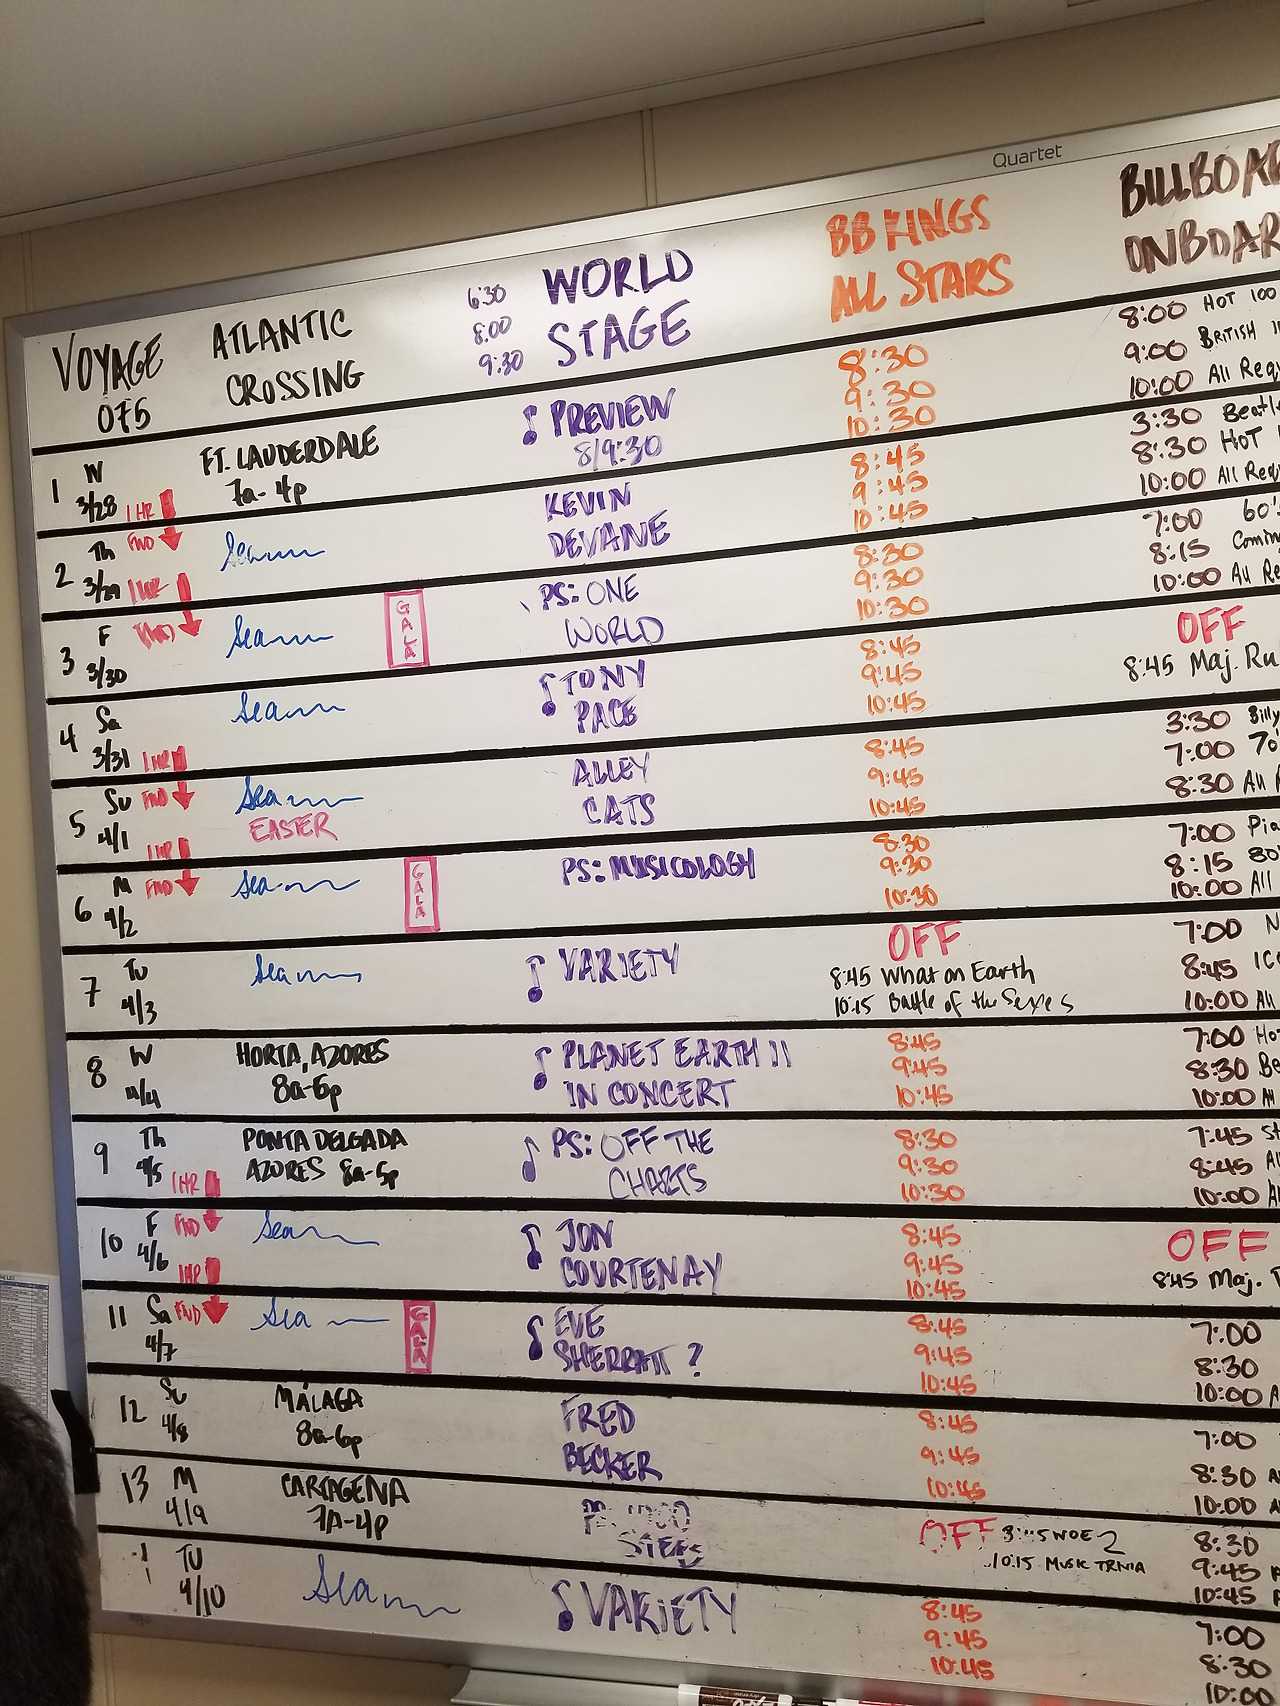 Quartet
VOYAGE
075
ATLANTIC
CROSSING
6:30
8:00
9:30
WORLD
STAGE
BB KINGS
ALL STARS
BILLBOA
ONBOAR
1 W
3/28
FT. LAUDERDALE
7a-4p
1 HR
♪ PREVIEW
8/9:30
8:30
9:30
10:30
8:00 HOT 100
9:00 BRITISH
10:00 All Requ
2 Th
3/29
FWD
1 HR
Sea
KEVIN
DEVANE
8:45
9:45
10:45
3:30 Beatle
8:30 HOT
10:00 All Req
3 F
3/30
Sea
GALA
PS: ONE
WORLD
8:30
9:30
10:30
7:00 60's
8:15 Comin
10:00 All Re
4 Sa
3/31
1 HR
Sea
♪ TONY
PACE
8:45
9:45
10:45
OFF
8:45 Maj. Ru
5 Su
4/1
FWD
1 HR
Sea
EASTER
ALLEY
CATS
8:45
9:45
10:45
3:30 Billy
7:00 70'
8:30 All
6 M
4/2
FWD
Sea
GALA
PS: MUSICOLOGY
8:30
9:30
10:30
7:00 Pia
8:15 80'
10:00 All
7 Tu
4/3
Sea
♪ VARIETY
OFF
8:45 What on Earth
10:15 Battle of the Sexes
7:00 N
8:45 ICo
10:00 All
8 W
4/4
HORTA, AZORES
8a-6p
♪ PLANET EARTH II
IN CONCERT
8:45
9:45
10:45
7:00 Ho
8:30 Be
10:00 All
9 Th
4/5
1 HR
PONTA DELGADA
AZORES 8a-5p
♪ PS: OFF THE
CHARTS
8:30
9:30
10:30
7:45 St
8:45 Al
10:00 Al
10 F
4/6
FWD
1 HR
Sea
♪ JON
COURTENAY
8:45
9:45
10:45
OFF
8:45 Maj.
11 Sa
4/7
FWD
Sea
GALA
♪ EVE
SHERRATT ?
8:45
9:45
10:45
7:00
8:30
10:00 A
12 Su
4/8
MÁLAGA
8a-6p
FRED
BECKER
8:45
9:45
10:45
7:00
8:30 A
10:00 A
13 M
4/9
CARTAGENA
7A-4P
STEPS
OFF
10:15 MUSIC TRIVIA
8:30
9:45
10:45
TU
4/10
Sea
♪ VARIETY
8:45
9:45
10:45
7:00
8:30
10:00